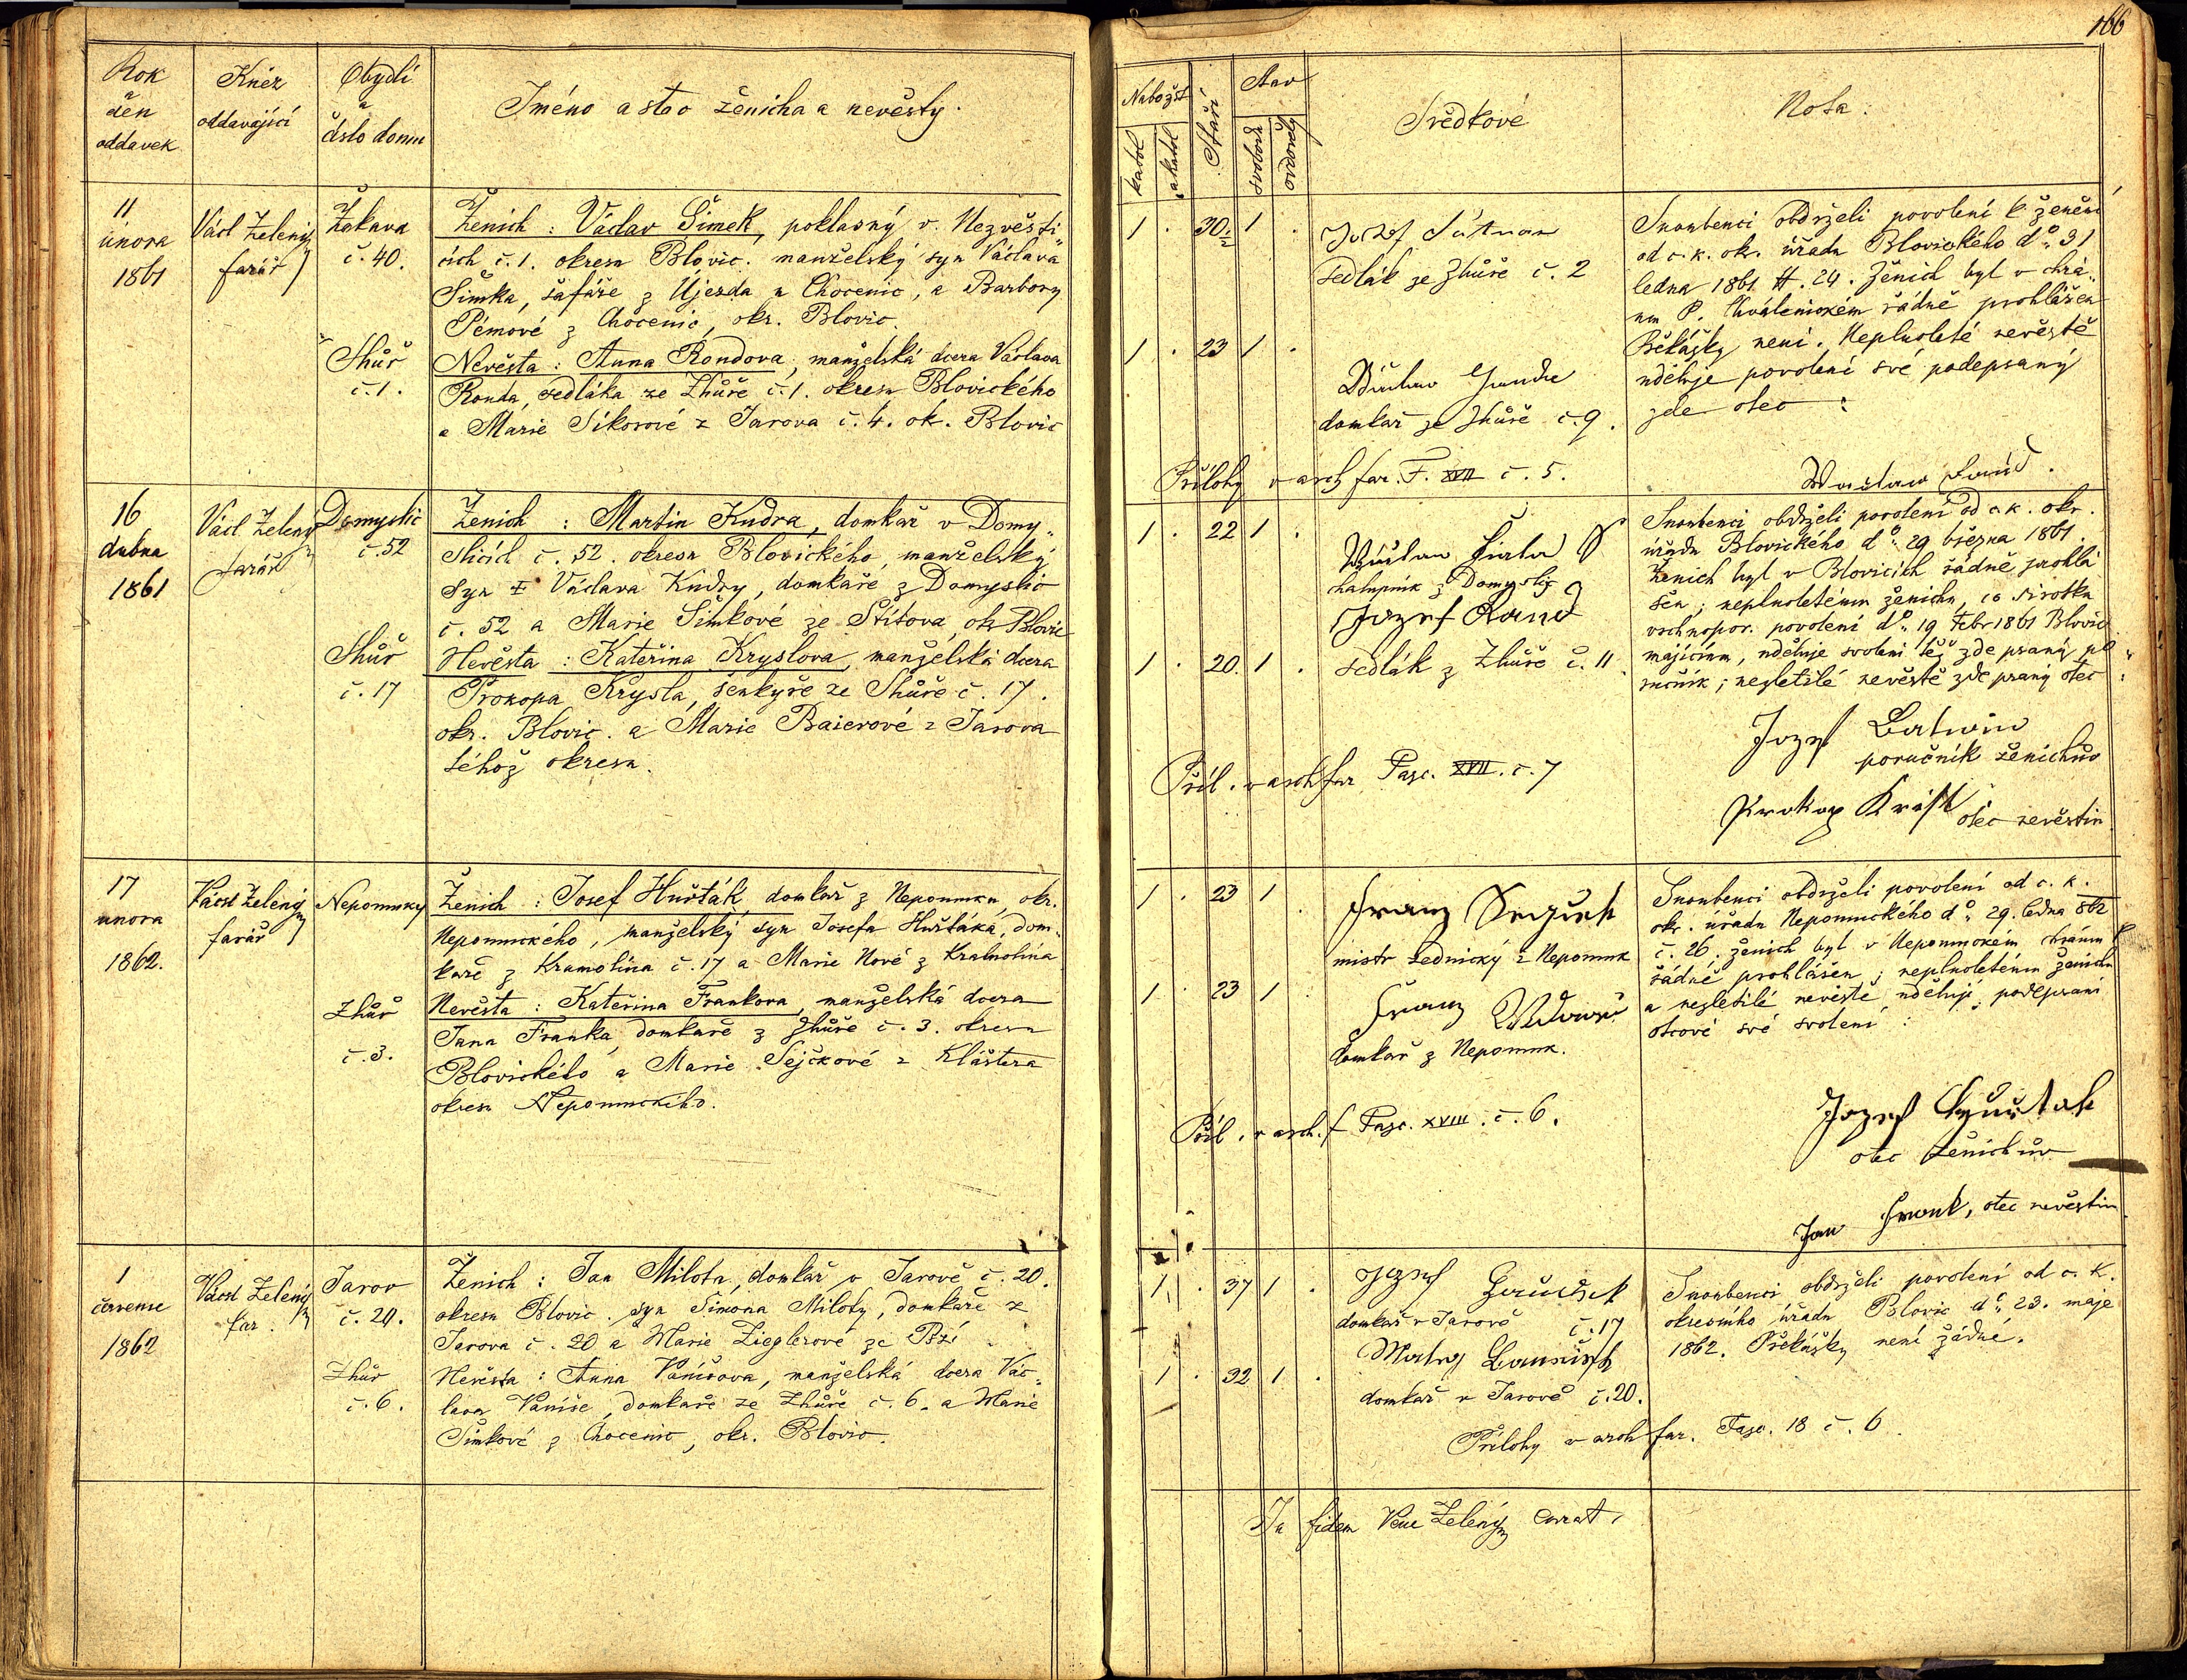 166
Rok
a
den
oddavek
Kněz
oddavající
Obydlí
a
číslo domu
Jméno a stav ženicha a nevěsty.
Nabožst
katol
akatol
Stáří
Stav
svobod
ovdověly
Svědkové
Nota:
11
února
1861
Václ Zelený
farář
Žákava
č. 40.
Ženich: Václav Šimek, poklasný v Nezvěsti
cích č. 1. okresu Blovic. manželský syn Václava
Šimka, šafáře z Újezda u Chocenic, a Barbory
Pémové z Chocenic, okr. Blovic.
Zhůř
č. 1.
Nevěsta: Anna Rondova, manželská dcera Václava
Ronda, sedláka ze Zhůře č. 1. okresu Blovického
a Marie Síkorové z Jarova č. 4. ok. Blovic
1 . 30. 1 .
1 . 23 1 .
Jozef
sedlák ze Zhůře č. 2
Václav
domkař ze Zhůře č. 9.
Přílohy v arch far. F. XVII č. 5.
Snoubenci obdrželi povolení k ženění
od c. k. okr. úřadu Blovického do. 31
ledna 1861 H. 24. Ženich byl v chrá
mu P. Chválenickém řádně prohlášen
Překážky není. Neplnoleté nevěstě
uděluje povolení své podepsaný
zde otec:
Waclaw
16
dubna
1861
Václ Zelený
farář
Domyslic
č. 52
Ženich: Martin Kudra, domkař v Domy
slicích č. 52. okresu Blovického, manželský
syn † Václava Kudry, domkaře z Domyslic
č. 52 a Marie Šimkové ze Štítova, okr Blovic
Zhůř
č. 17
Nevěsta: Kateřina Kryslova, manželská dcera
Prokopa Krysla, šenkýře ze Zhůře č. 17.
okr. Blovic. a Marie Baierové z Jarova
téhož okresu.
1 . 22 1 .
1 . 20. 1 .
Wáclaw Fiala
chalupník z Domyslic
Jozef Rand
sedlák z Zhůře č. 11
Příl. v arch far Fasc. XVII. č. 7
Snoubenci obdrželi povolení od c. k. okr.
úřadu Blovického do. 29 března 1861.
Ženich byl v Blovicích řádně prohlá
šen; neplnoletému ženichu, co sirotku
vrchnopor. povolení do. 19 Febr 1861 Blovic
majícímu, uděluje svolení též zde psaný po
ručník; nezletilé nevěstě zde psaný otec:
Jozef
poručník ženichův
Prokop Krisl
otec nevěstin
17
února
1862.
Václ Zelený
farář
Nepomuky
Ženich: Josef Huršták domkař z Nepomuku, okr.
Nepomuckého, manželský syn Josefa Huštáka, dom
kaře z Kramolína č. 17 a Marie Nové z Kramolína
Zhůř
č. 3.
Nevěsta: Kateřina Frankova, manželská dcera
Jana Franka, domkaře z Zhůře č. 3. okresu
Blovického a Marie Sejčkové z Kláštera
okresu Nepomuckého.
1 . 23 1 .
1 . 23 1 .
Franz
mistr zednický z Nepomuk
Franz
domkař z Nepomuk.
Příl. v arch. f Fasc. XVIII. č. 6.
Snoubenci obdrželi povolení od c. k.
okr. úřadu Nepomuckého do. 29. ledna 862
č. 26. ženich byl v Nepomuckém chrámu P
řádně prohlášen; neplnoletému ženichu
a nezletilé nevěstě udělují podepsaní
otcové své svolení:
Jozef Huštak
otec ženichův
Jan Frank, otec nevěstin
1
července
1862
Václ Zelený
far.
Jarov
č. 20.
Ženich: Jan Milota, domkař v Jarově č. 20.
okresu Blovic. syn Šimona Miloty, domkaře z
Jarova č. 20 a Marie Zieglerové ze Bzí
Zhůř
č. 6.
Nevěsta: Anna Vaníšova, manželská dcera Vác
lava Vaníše, domkaře ze Zhůře č. 6. a Marie
Šimkové z Chocenic, okr. Blovic.
1 . 37 1 .
1 . 32 1 .
Jozef
domkař v Jarově č. 17
Matěj
domkař v Jarově č. 20.
Přílohy v arch far. Fasc. 18 č. 6
Snoubenci obdrželi povolení od c. k.
okresního úřadu Blovic do. 23. maje
1862. Překážky není žádné.
In fidem Venc Zelený curat.